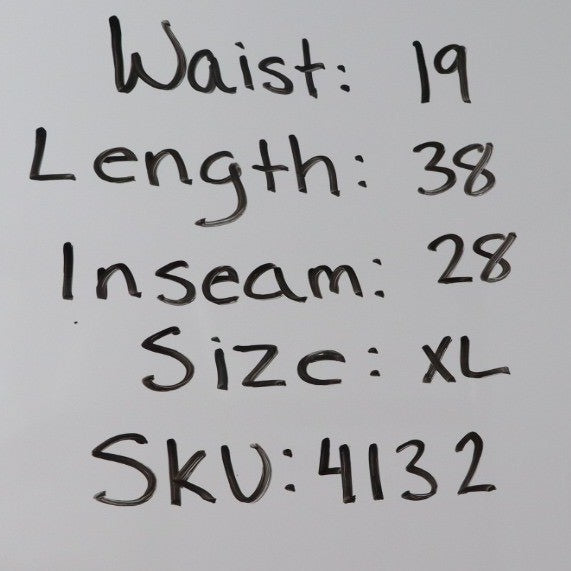 Waist: 19
Length: 38
Inseam: 28
Size: XL
SKU: 4132